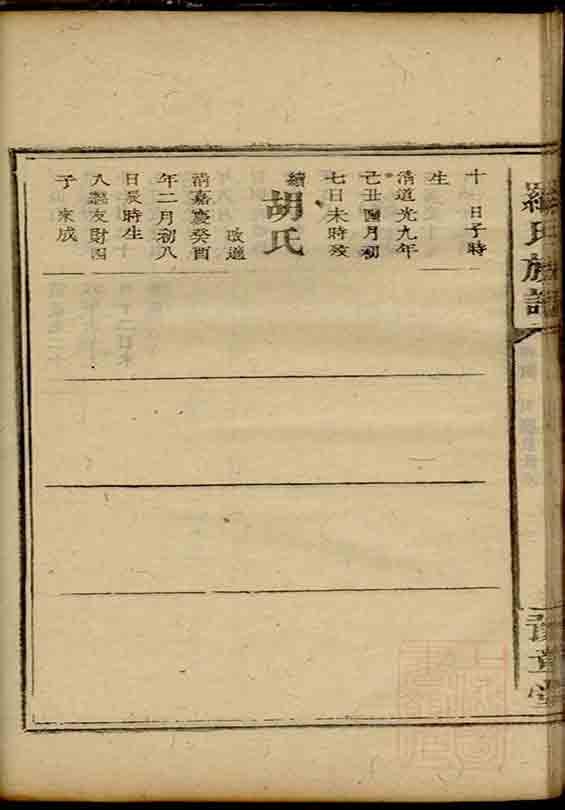 羅氏族譜
豫章堂
十日子時
生
清道光九年
己丑四月初
七日未時歿
續
胡氏
改適
清嘉慶癸酉
年二月初八
日辰時生
友財四
子來成